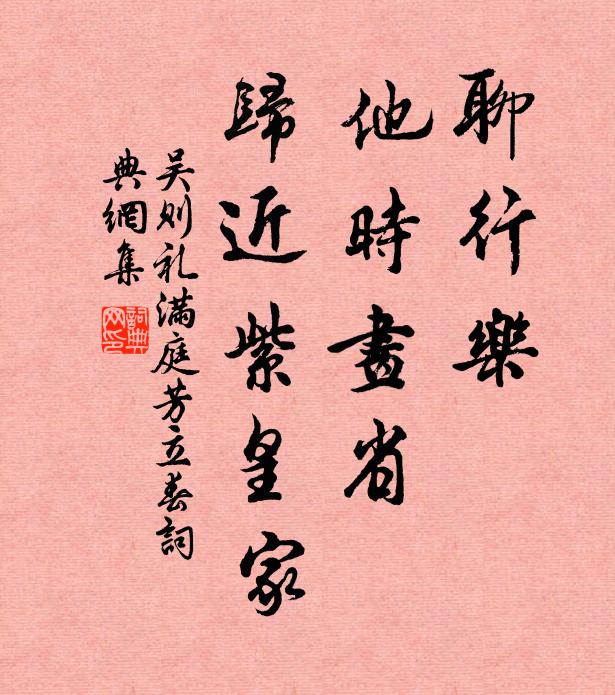 聊行樂
他時畫省
歸近紫皇家
吴則礼滿庭芳立春詞
典網集
詞典網印